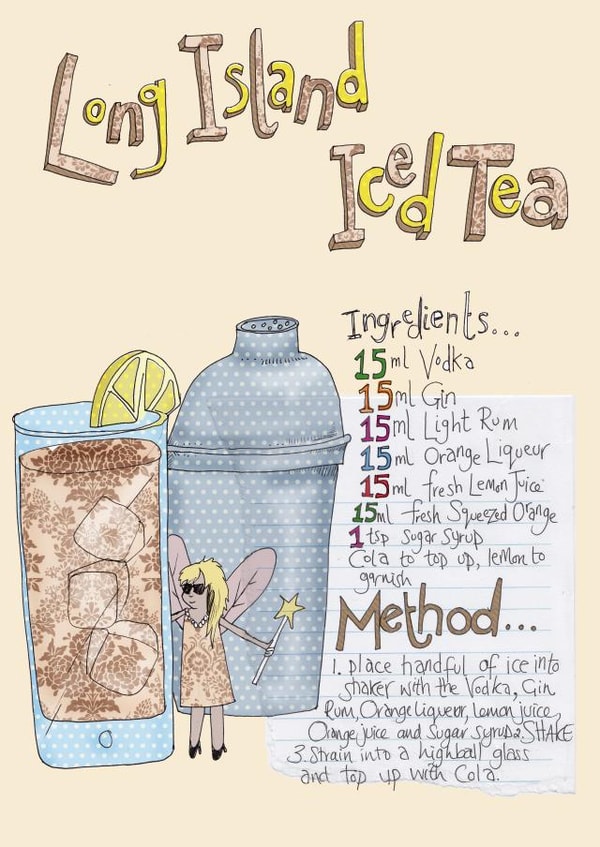 Long Island
Iced Tea
Ingredients...
15ml Vodka
15ml Gin
15ml Light Rum
15ml Orange Liqueur
15ml fresh Lemon Juice
15ml fresh Squeezed Orange
1 tsp sugar syrup
Cola to top up, lemon to
garnish
Method...
1. place handful of ice into
shaker with the Vodka, Gin
Rum, Orange liqueur, lemon juice,
Orange juice and sugar syrup 2. SHAKE
3. Strain into a highball glass
and top up with Cola.